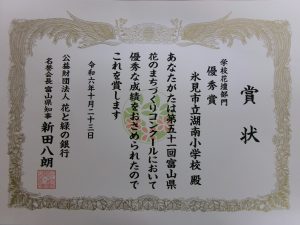 賞状
学校花壇部門
優秀賞
氷見市立湖南小学校 殿
あなたがたは第五十一回富山県
花のまちづくりコンクールにおいて
優秀な成績をおさめられたので
これを賞します
令和六年十月二十三日
公益財団法人 花と緑の銀行
名誉会長 富山県知事 新田八朗